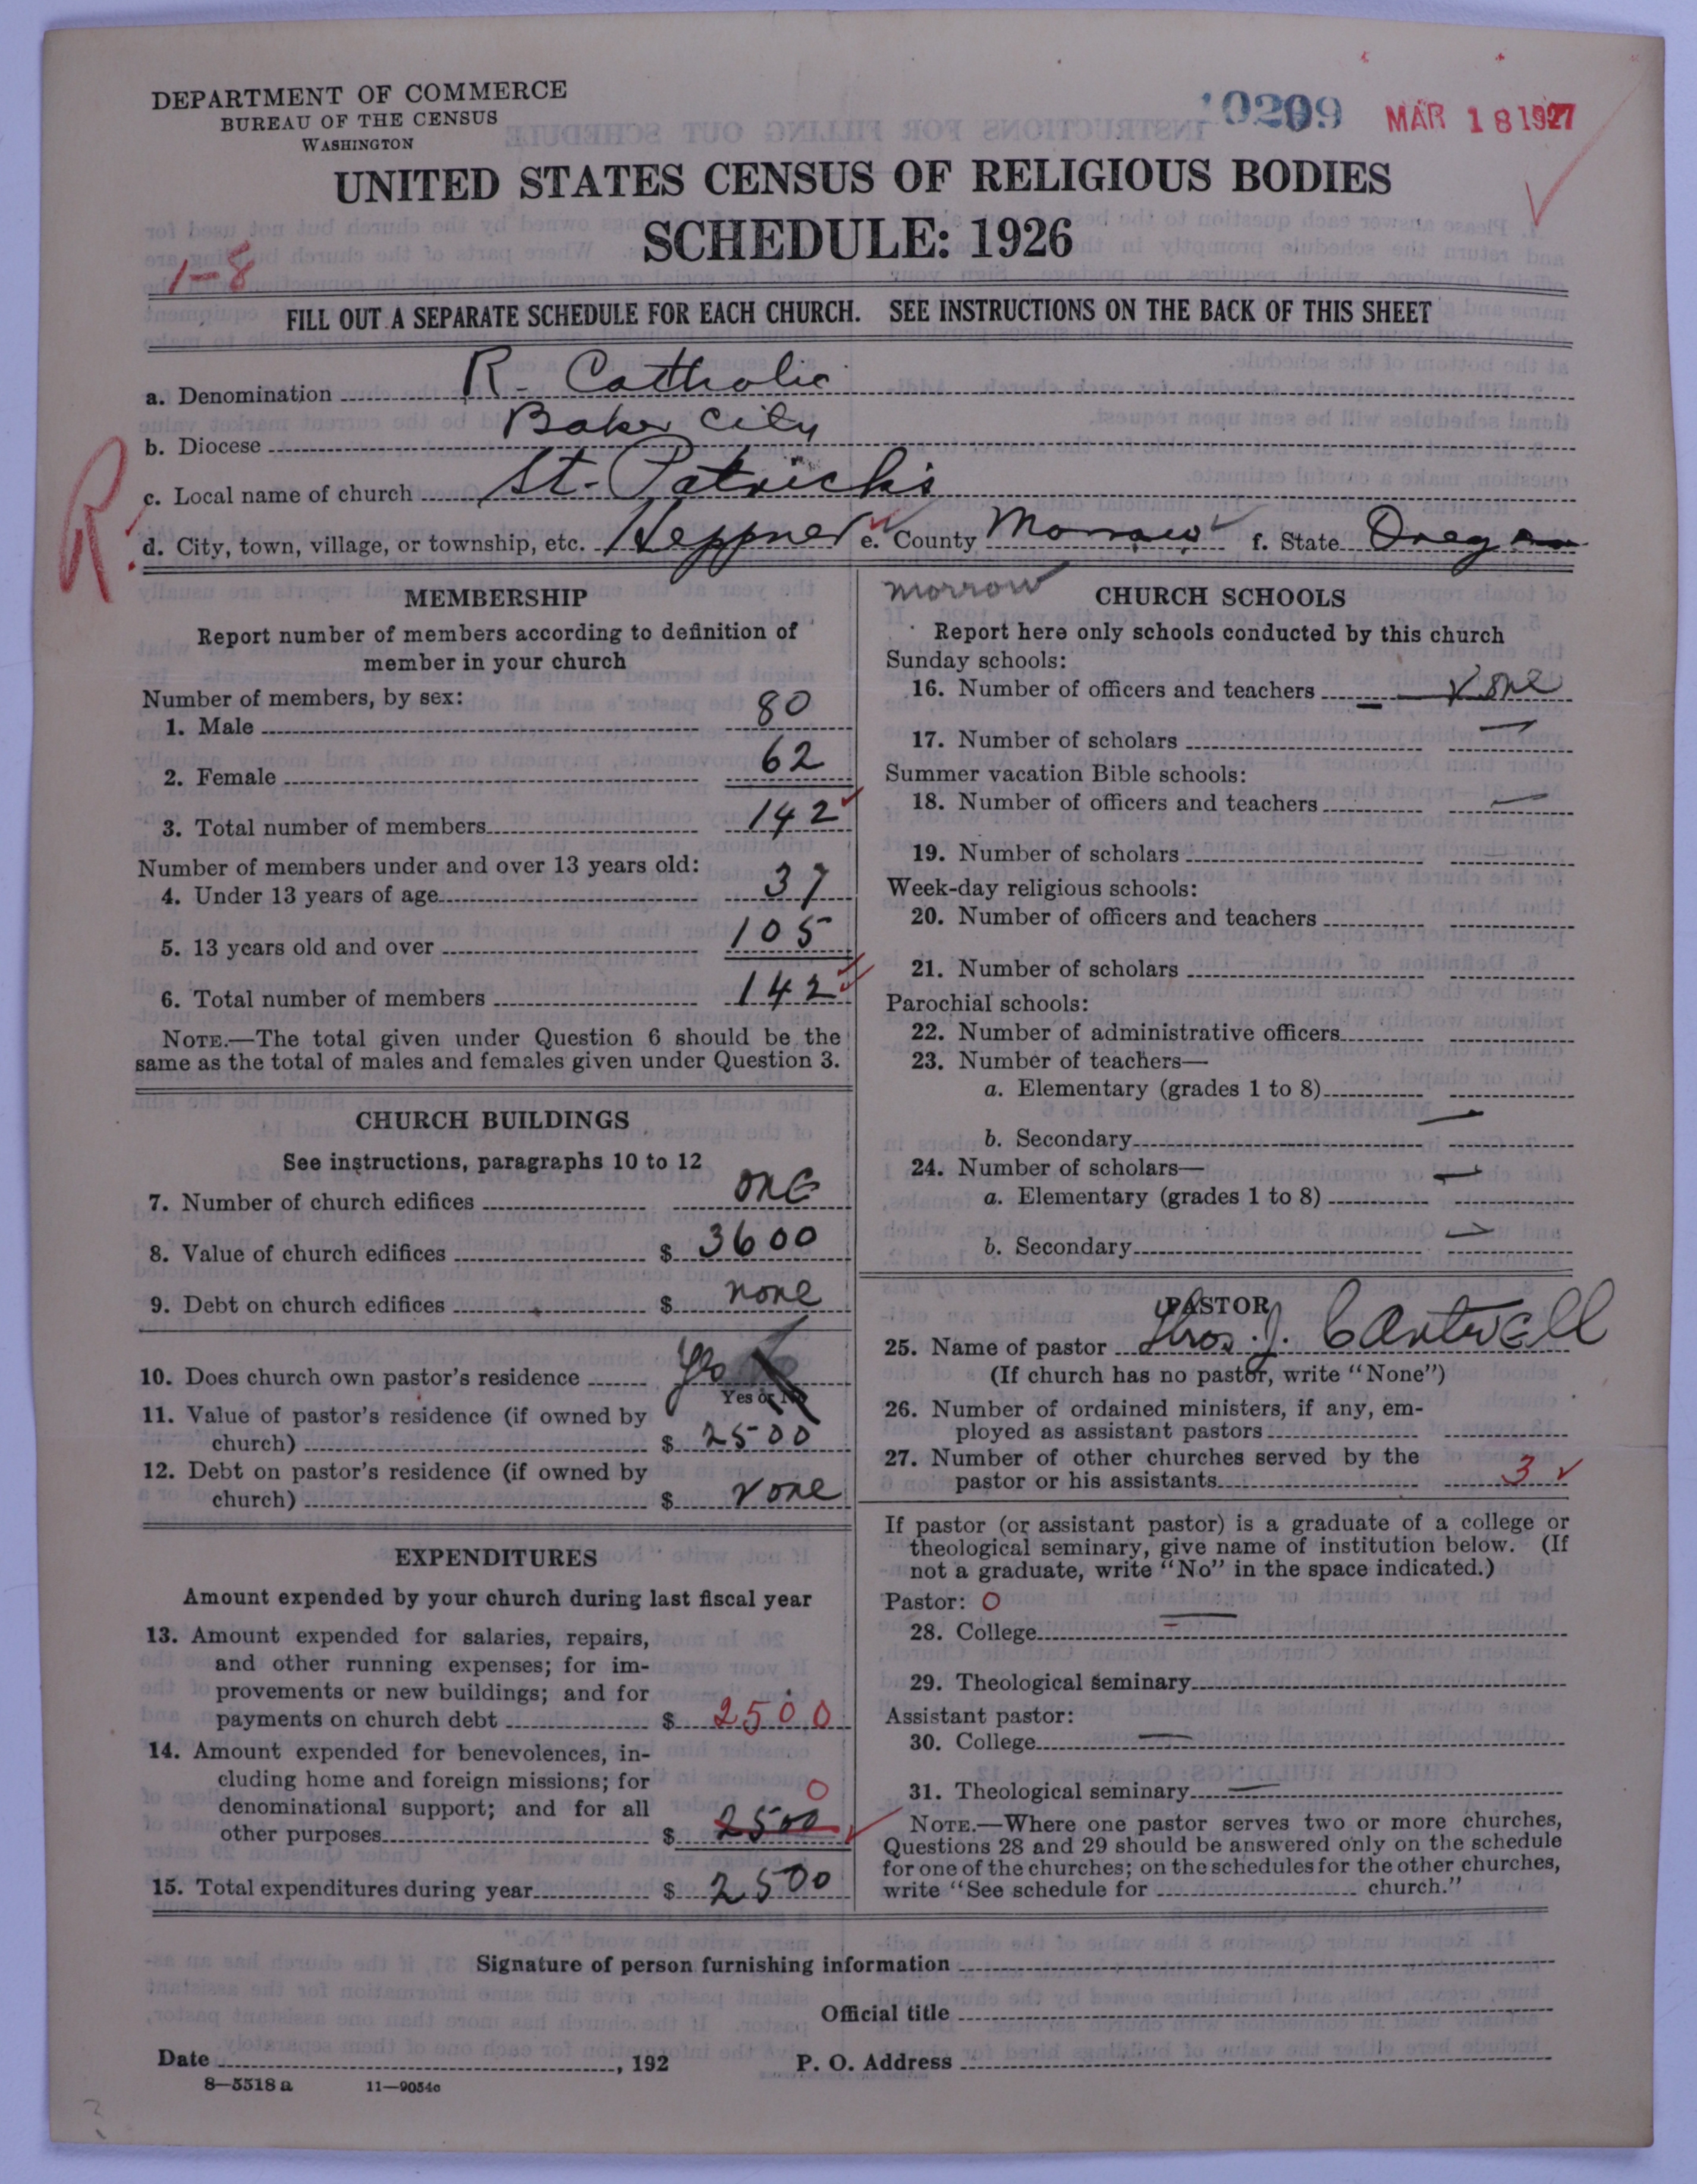 DEPARTMENT OF COMMERCE
BUREAU OF THE CENSUS
WASHINGTON
10209 MAR 18 1927
UNITED STATES CENSUS OF RELIGIOUS BODIES
SCHEDULE: 1926
1-8
FILL OUT A SEPARATE SCHEDULE FOR EACH CHURCH. SEE INSTRUCTIONS ON THE BACK OF THIS SHEET
a. Denomination R. Catholic
b. Diocese Baker City
c. Local name of church St. Patrick's
R.
d. City, town, village, or township, etc. Heppner e. County Morrow f. State Oregon
MEMBERSHIP
Report number of members according to definition of
member in your church
Number of members, by sex:
1. Male 80
2. Female 62
3. Total number of members 142
Number of members under and over 13 years old:
4. Under 13 years of age 37
5. 13 years old and over 105
6. Total number of members 142
NOTE.—The total given under Question 6 should be the
same as the total of males and females given under Question 3.
CHURCH BUILDINGS
See instructions, paragraphs 10 to 12
7. Number of church edifices one
8. Value of church edifices $ 3600
9. Debt on church edifices $ none
10. Does church own pastor's residence Yes
Yes or No
11. Value of pastor's residence (if owned by
church) $ 2500
12. Debt on pastor's residence (if owned by
church) $ none
EXPENDITURES
Amount expended by your church during last fiscal year
13. Amount expended for salaries, repairs,
and other running expenses; for im-
provements or new buildings; and for
payments on church debt $ 2500
14. Amount expended for benevolences, in-
cluding home and foreign missions; for
denominational support; and for all 0
other purposes $ 2500
15. Total expenditures during year $ 2500
morrow CHURCH SCHOOLS
Report here only schools conducted by this church
Sunday schools:
16. Number of officers and teachers none
17. Number of scholars —
Summer vacation Bible schools:
18. Number of officers and teachers —
19. Number of scholars
Week-day religious schools:
20. Number of officers and teachers
21. Number of scholars
Parochial schools:
22. Number of administrative officers
23. Number of teachers—
a. Elementary (grades 1 to 8)
b. Secondary —
24. Number of scholars—
a. Elementary (grades 1 to 8) —
b. Secondary —
PASTOR
25. Name of pastor Thos. J. Cantwell
(If church has no pastor, write "None")
26. Number of ordained ministers, if any, em-
ployed as assistant pastors
27. Number of other churches served by the
pastor or his assistants 3
If pastor (or assistant pastor) is a graduate of a college or
theological seminary, give name of institution below. (If
not a graduate, write "No" in the space indicated.)
Pastor: O
28. College —
29. Theological seminary
Assistant pastor:
30. College —
31. Theological seminary —
NOTE.—Where one pastor serves two or more churches,
Questions 28 and 29 should be answered only on the schedule
for one of the churches; on the schedules for the other churches,
write "See schedule for church."
Signature of person furnishing information
Official title
Date , 192 P. O. Address
8—5518 a 11—9054c